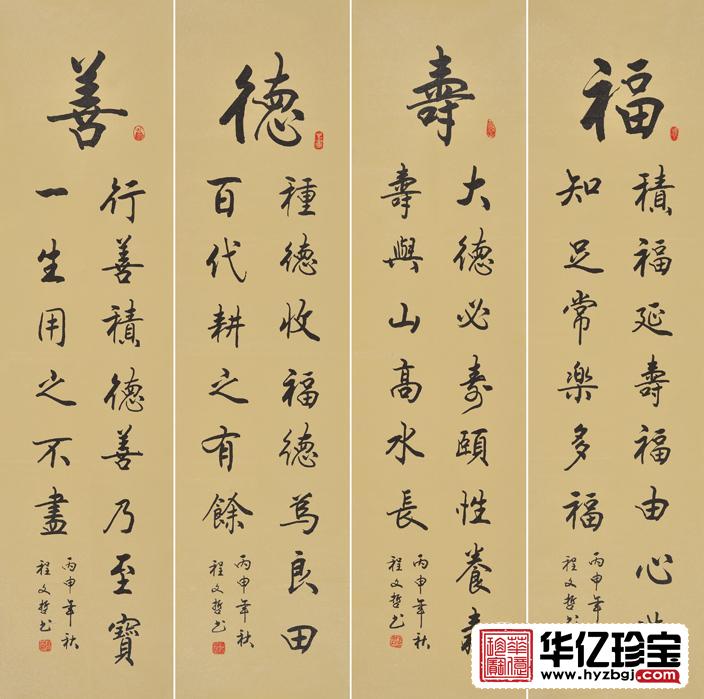 福
積福延壽福由心
知足常樂多福
丙申年
程文哲书
壽
大德必寿頤性養壽
壽與山高水長
丙申年秋
程文哲书
德
種德收福德為良田
百代耕之有餘
丙申年秋
程文哲书
善
行善積德善乃至寶
一生用之不盡
丙申年秋
程文哲书
华亿珍宝
www.hyzbgj.com